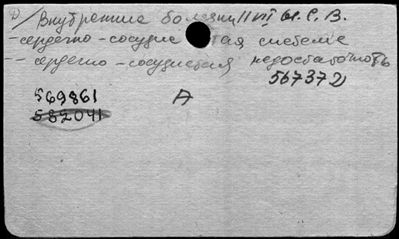 Внутренние болезни
-сердечно-сосудистая система
-- сердечно-сосудистая недостаточность
567372
569861 А
582041